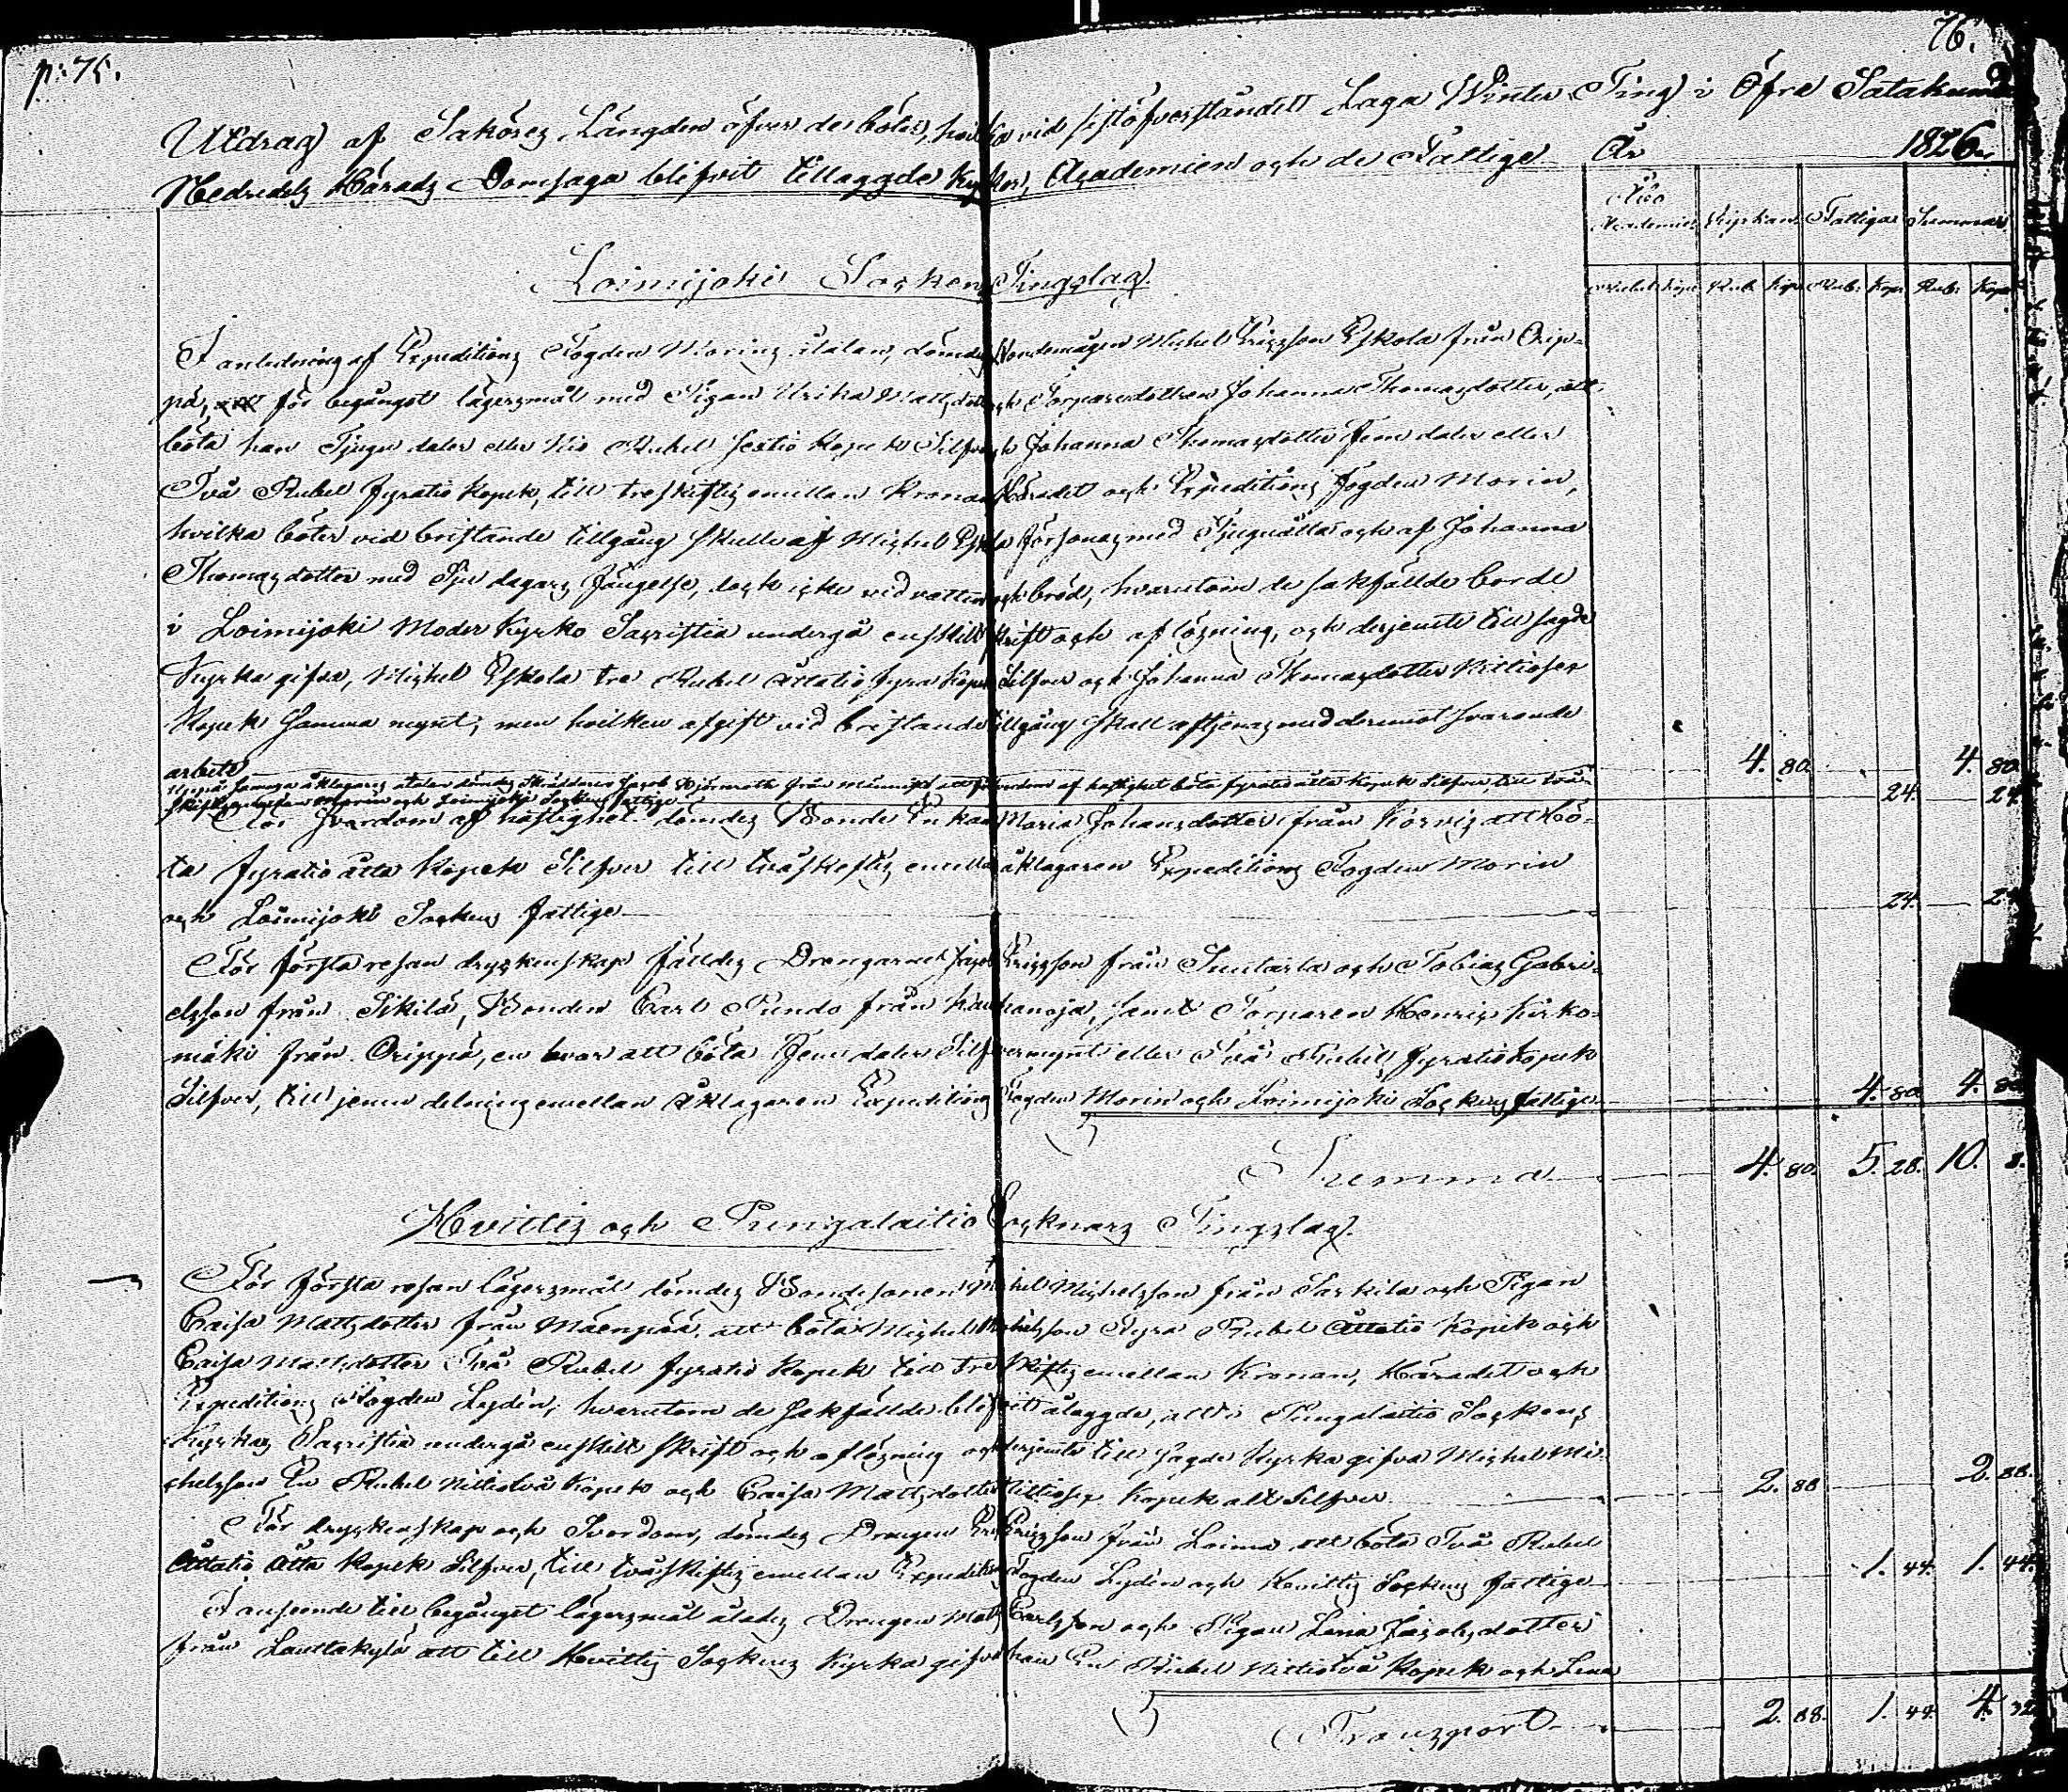 p: 75.
76.
Utdrag af Saköres Längden öfver de böter, hvilka vid sistöfverståndett Laga Winter Ting i Öfre Satakunda
Nedredels Härads Domsaga blifvit tillaggde Kyrkor, Academien och de Fattige År 1826.
Åbo Academie Kyrkan Fattiga Summa
Rubel Kop. Rub. Kop. Rub. Kop. Rub. Kop.
Loimijoki Socken Tingslag.
I anledning af Expeditions Fogden Morins åtalan, dömdes Bondemågen Michel Ericsson Eskola från Orip-
pä, för begånget lägersmål med Pigan Ulrika Mattsdotter och Torparedottren Johanna Thomasdotter, att
böta han Tjugu daler eller Nio Rubel sextio Kopek Silfver och Johanna Thomasdotter Fem daler eller
Två Rubel fyratio Kopek, till treskiftes emellan Kronan, Häradet och Expeditions Fogden Morin,
hvilka böter vid bristande tillgång skulle af Michel Eskola försonas med Tjuguåtta och af Johanna
Thomasdotter med Sju dagars fängelse, dock icke vid vatten och bröd, hvarutom de sakfällde borde
i Loimijoki Moder Kyrko Sacristia undergå enskildt skrift och aflösning, och derjemte till sagde
Kyrka gifva, Michel Eskola tre Rubel åttatiofyra Kopek Silfver och Johanna Thomasdotter Nittiosex
Kopek samma mynt; men hvilken afgift vid bristande tillgång skall aftjenas med deremot svarande
arbete 4. 80. 4. 80.
Uppå samma åklagares åtalan dömdes Skräddaren Jacob Björnroth från att för svordom af häftighet böta fyratioåtta Kopek Silfver, till två-
skiftes emellan Morin och Loimijoki Sockens fattige 24. 24.
För svordom af häftighet dömdes Bonde Enkan Maria Johansdotter från Korvis att bö-
ta fyratioåtta Kopek Silfver till tvåskiftes emellan åklagaren Expeditions Fogden Morin
och Loimijoki Sockens fattige 24. 24.
För första resan dryckenskap fälldes Drengarne Jacob Ericsson från Suutarla och Tobias Gabri-
elsson från Sikilä, Bonden Carl Pundo från Kauhanoja, samt Torparen Henric Kirko-
mäki från Orippä, en hvar att böta Fem daler Silfvermynt eller Två Rubel fyratio Kopek
Silfver, till jemn delning emellan Åklagaren Expeditions Fogden Morin och Loimijoki Sockens fattige 4. 80. 4. 80.
Summa 4. 80. 5. 28. 10. 8.
Hvittis och Pungalaitio Socknars Tingslag.
För första resan lägersmål dömdes Bondesonen Michel Michelsson från Sarkila och Pigan
Caisa Mattsdotter från Mäenpää, att böta Michel Michelsson Fyra Rubel Åttatio Kopek och
Caisa Mattsdotter Två Rubel fyratio Kopek till treskiftes emellan Kronan, Häradet och
Expeditions Fogden Lydén, hvarutom de sakfällde blifvit ålaggde, att i Pungalaitio Sockens
Kyrkas Sacristia undergå enskilt skrift och aflösning och derjemte till sagde Kyrka gifva Michel Mi-
chelsson En Rubel Nittiotvå Kopek och Caisa Mattsdotter Nittiosex Kopek allt Silfver 2. 88. 2. 88.
För dryckenskap och Svordom, dömdes Drengen Eric Ericsson från Loima att böta Två Rubel
Åttatio åtta Kopek Silfver, till tvåskiftes emellan Expeditions Fogden Lydén och Hvittis Sockens fattige 1. 44. 1. 44.
I anseende till begånget lägersmål ålades Drengen Matts Carlsson och Pigan Lena Jacobsdotter
från Lauttakylä att till Hvittis Sockens Kyrka gifva han En Rubel Nittiotvå Kopek och Lena
Transport 2. 88. 1. 44. 4. 32.